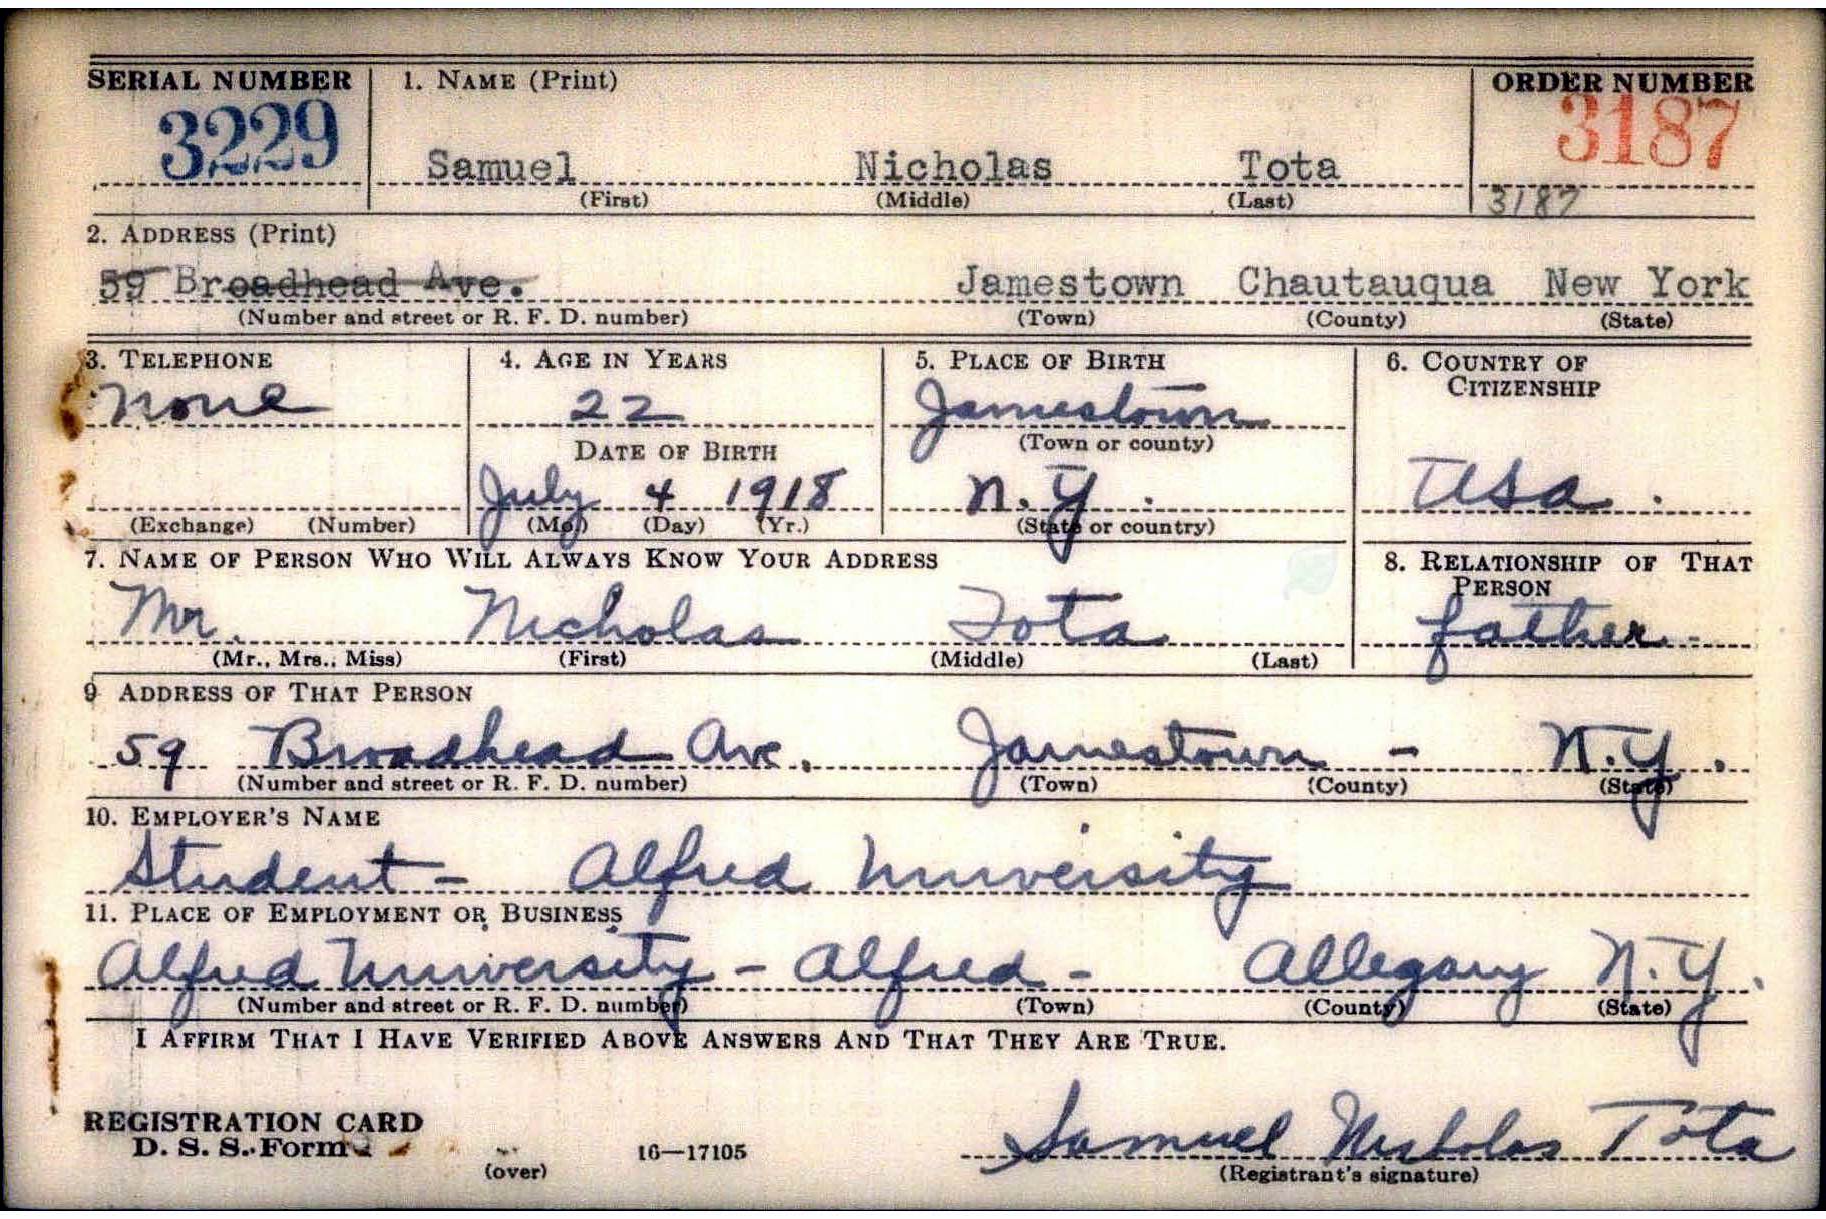 SERIAL NUMBER 1. NAME (Print) ORDER NUMBER
3229 Samuel Nicholas Tota 3187
(First) (Middle) (Last) 3187
2. ADDRESS (Print)
59 Broadhead Ave. Jamestown Chautauqua New York
(Number and street or R. F. D. number) (Town) (County) (State)
3. TELEPHONE 4. AGE IN YEARS 5. PLACE OF BIRTH 6. COUNTRY OF
CITIZENSHIP
None 22 Jamestown
DATE OF BIRTH (Town or county)
July 4 1918 N.Y. USA.
(Exchange) (Number) (Mo.) (Day) (Yr.) (State or country)
7. NAME OF PERSON WHO WILL ALWAYS KNOW YOUR ADDRESS 8. RELATIONSHIP OF THAT
PERSON
Mr. Nicholas Tota father -
(Mr., Mrs., Miss) (First) (Middle) (Last)
9 ADDRESS OF THAT PERSON
59 Broadhead Ave. Jamestown - N.Y.
(Number and street or R. F. D. number) (Town) (County) (State)
10. EMPLOYER'S NAME
Student - Alfred University
11. PLACE OF EMPLOYMENT OR BUSINESS
Alfred University - Alfred - Allegany N.Y.
(Number and street or R. F. D. number) (Town) (County) (State)
I AFFIRM THAT I HAVE VERIFIED ABOVE ANSWERS AND THAT THEY ARE TRUE.
REGISTRATION CARD
D. S. S. Form 16—17105 Samuel Nicholas Tota
(over) (Registrant's signature)